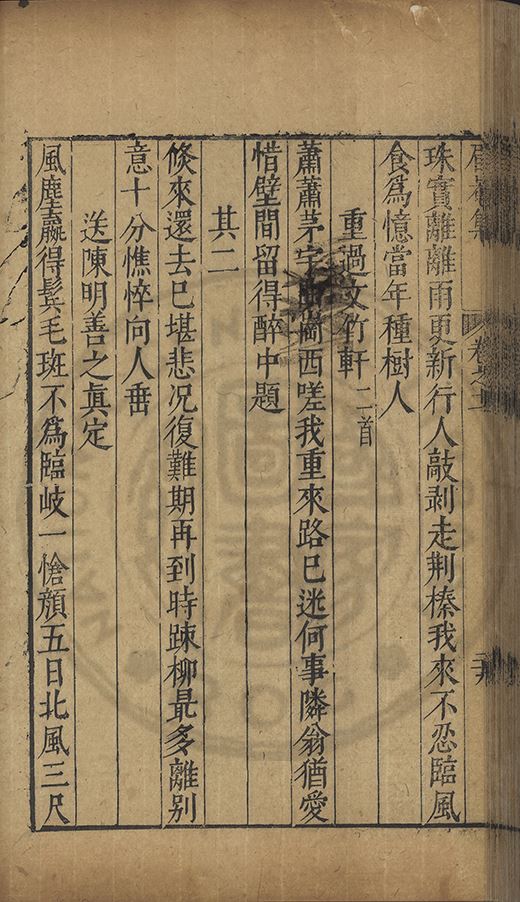 珠實離離雨更新行人敲剥走荆榛我來不忍臨風
食爲憶當年種樹人
重過文竹軒二首
蕭蕭茅宇崗西嗟我重來路已迷何事隣翁猶愛
惜壁間留得醉中題
其二
倐來還去已堪悲况復難期再到時踈柳最多離别
意十分憔悴向人垂
送陳明善之眞定
風塵贏得鬂毛斑不爲臨岐一愴顔五日北風三尺